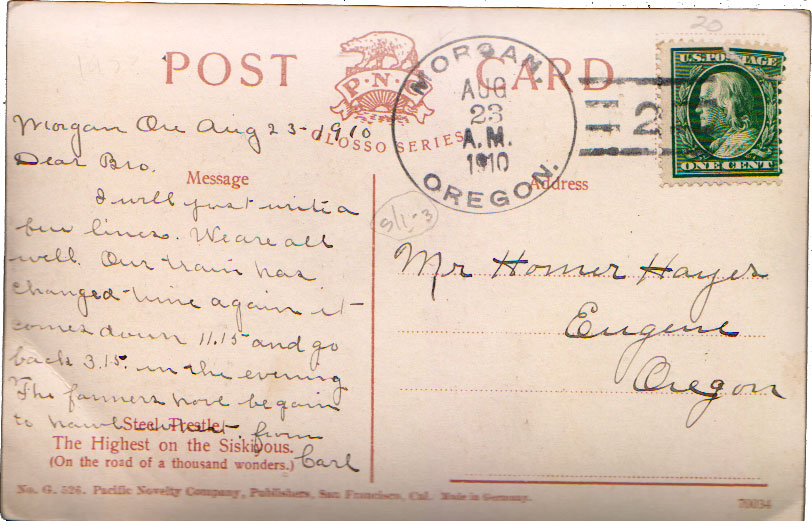 20
POST CARD
P·N·C
GLOSSO SERIES
MORGAN.
AUG
23
A.M.
1910
OREGON.
2
U.S. POSTAGE
ONE CENT
Morgan Ore Aug 23-1910
Dear Bro.
Message
I will just write a
few lines. We are all
well. Our train has
changed time again it
comes down 11.15 and go
back 3.15. in the evening
The farmers have begain
to hawl wheat. from
Carl
Address
Mr Homer Hayes
Eugene
Oregon
Steel Trestle,
The Highest on the Siskiyous.
(On the road of a thousand wonders.)
No. G. 526. Pacific Novelty Company, Publishers, San Francisco, Cal. Made in Germany.
70034